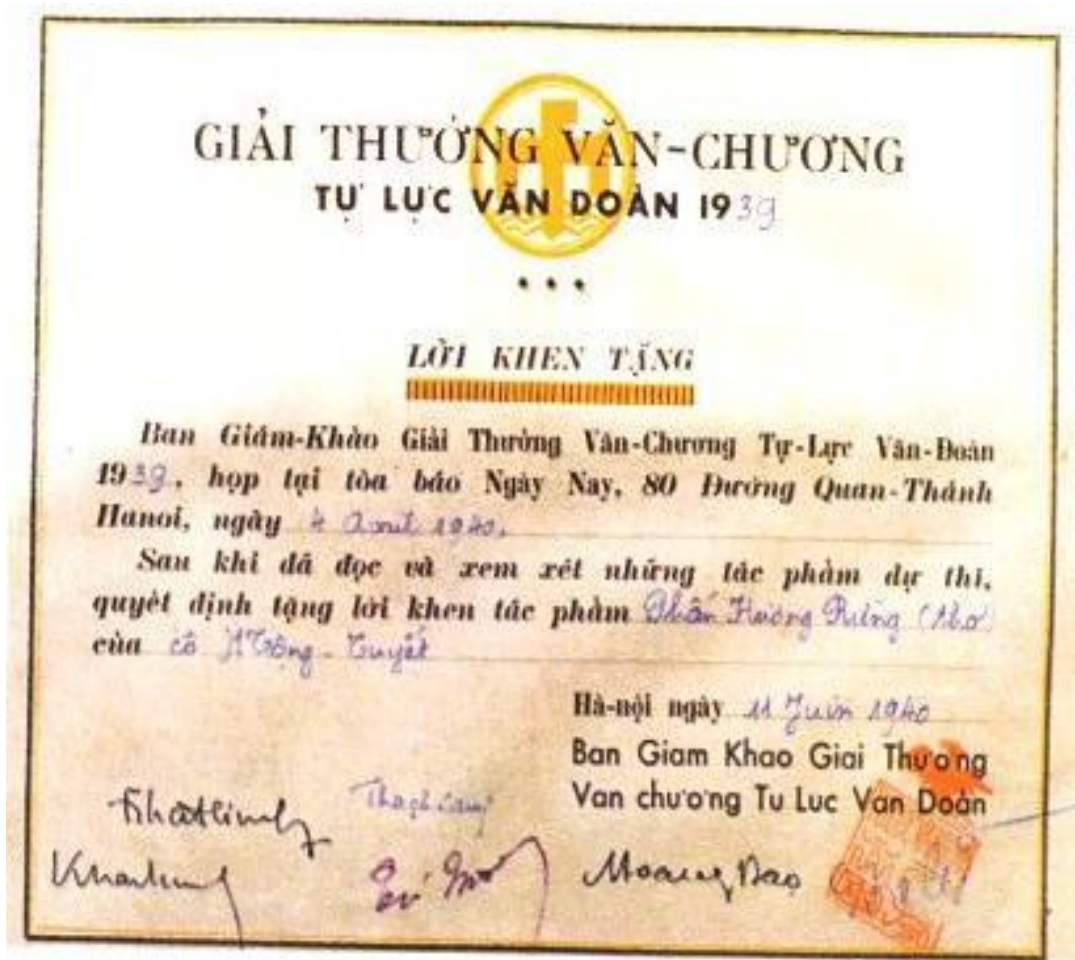 GIẢI THƯỞNG VĂN-CHƯƠNG
TỰ LỰC VĂN DOÀN 1939
LỜI KHEN TẶNG
Ban Giám-Khảo Giải Thưởng Văn-Chương Tự-Lực Văn-Đoàn
1939, họp tại tòa báo Ngày Nay, 80 Đường Quan-Thánh
Hanoi, ngày 4 Avril 1940.
Sau khi đã đọc và xem xét những tác phẩm dự thi,
quyết định tặng lời khen tác phẩm Phấn Hương Rừng (thơ)
của cô Mộng-Tuyết
Hà-nội ngày 11 Juin 1940
Ban Giam Khao Giai Thương
Van chương Tu Luc Van Doàn
Nhatlinh Thạch Lam
Khaihung Tú Mỡ Hoang Đao